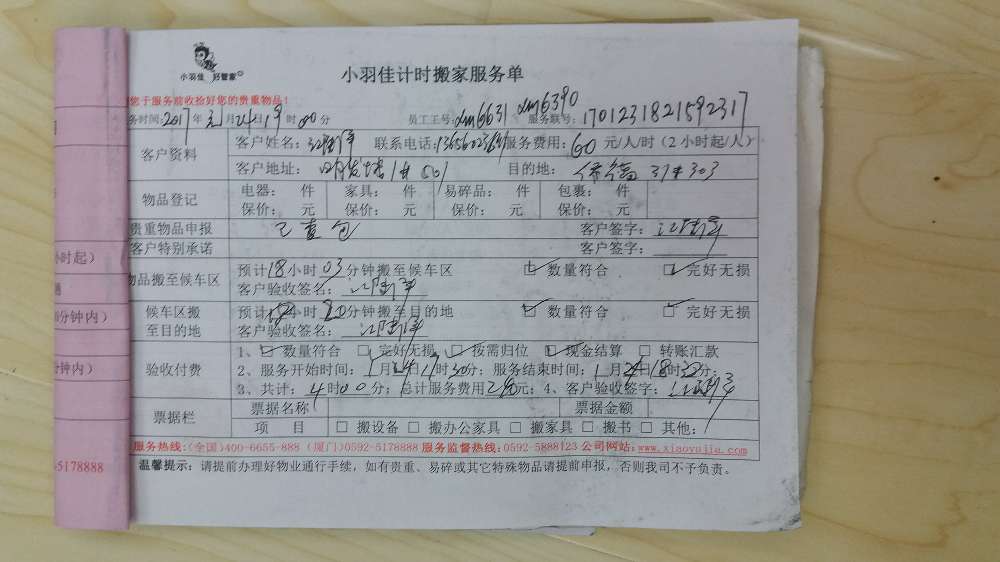 小羽佳 好管家
小羽佳计时搬家服务单
您于服务前收拾好您的贵重物品！
务时间:2017年元月 日 时00分 员工工号: xm6631 xm6390 服务联号: 1701231821592317
客户资料 客户姓名: 联系电话: 服务费用: 60 元/人/时（2小时起/人）
客户地址: 1# 目的地: 37#303
物品登记 电器: 件 家具: 件 易碎品: 件 包裹: 件
保价: 元 保价: 元 保价: 元 保价: 元
贵重物品申报 已查包 客户签字:
客户特别承诺 客户签字:
小时起）
物品搬至候车区 预计18小时03分钟搬至候车区 数量符合 完好无损
客户验收签名:
分钟内）
候车区搬至目的地 预计 小时20分钟搬至目的地 数量符合 完好无损
客户验收签名:
分钟内）
验收付费 1、数量符合 完好无损 按需归位 现金结算 转账汇款
2、服务开始时间: 1月 日 时30分; 服务结束时间: 1月 日18时 分;
3、共计: 4时00分; 总计服务费用 元; 4、客户验收签字:
票据栏 票据名称 票据金额
项 目 搬设备 搬办公家具 搬家具 搬书 其他:
-5178888
服务热线:(全国)400-6655-888 (厦门)0592-5178888 服务监督热线:0592-5888123 公司网站:www.xiaoyujia.com
温馨提示: 请提前办理好物业通行手续, 如有贵重、易碎或其它特殊物品请提前申报, 否则我司不予负责。